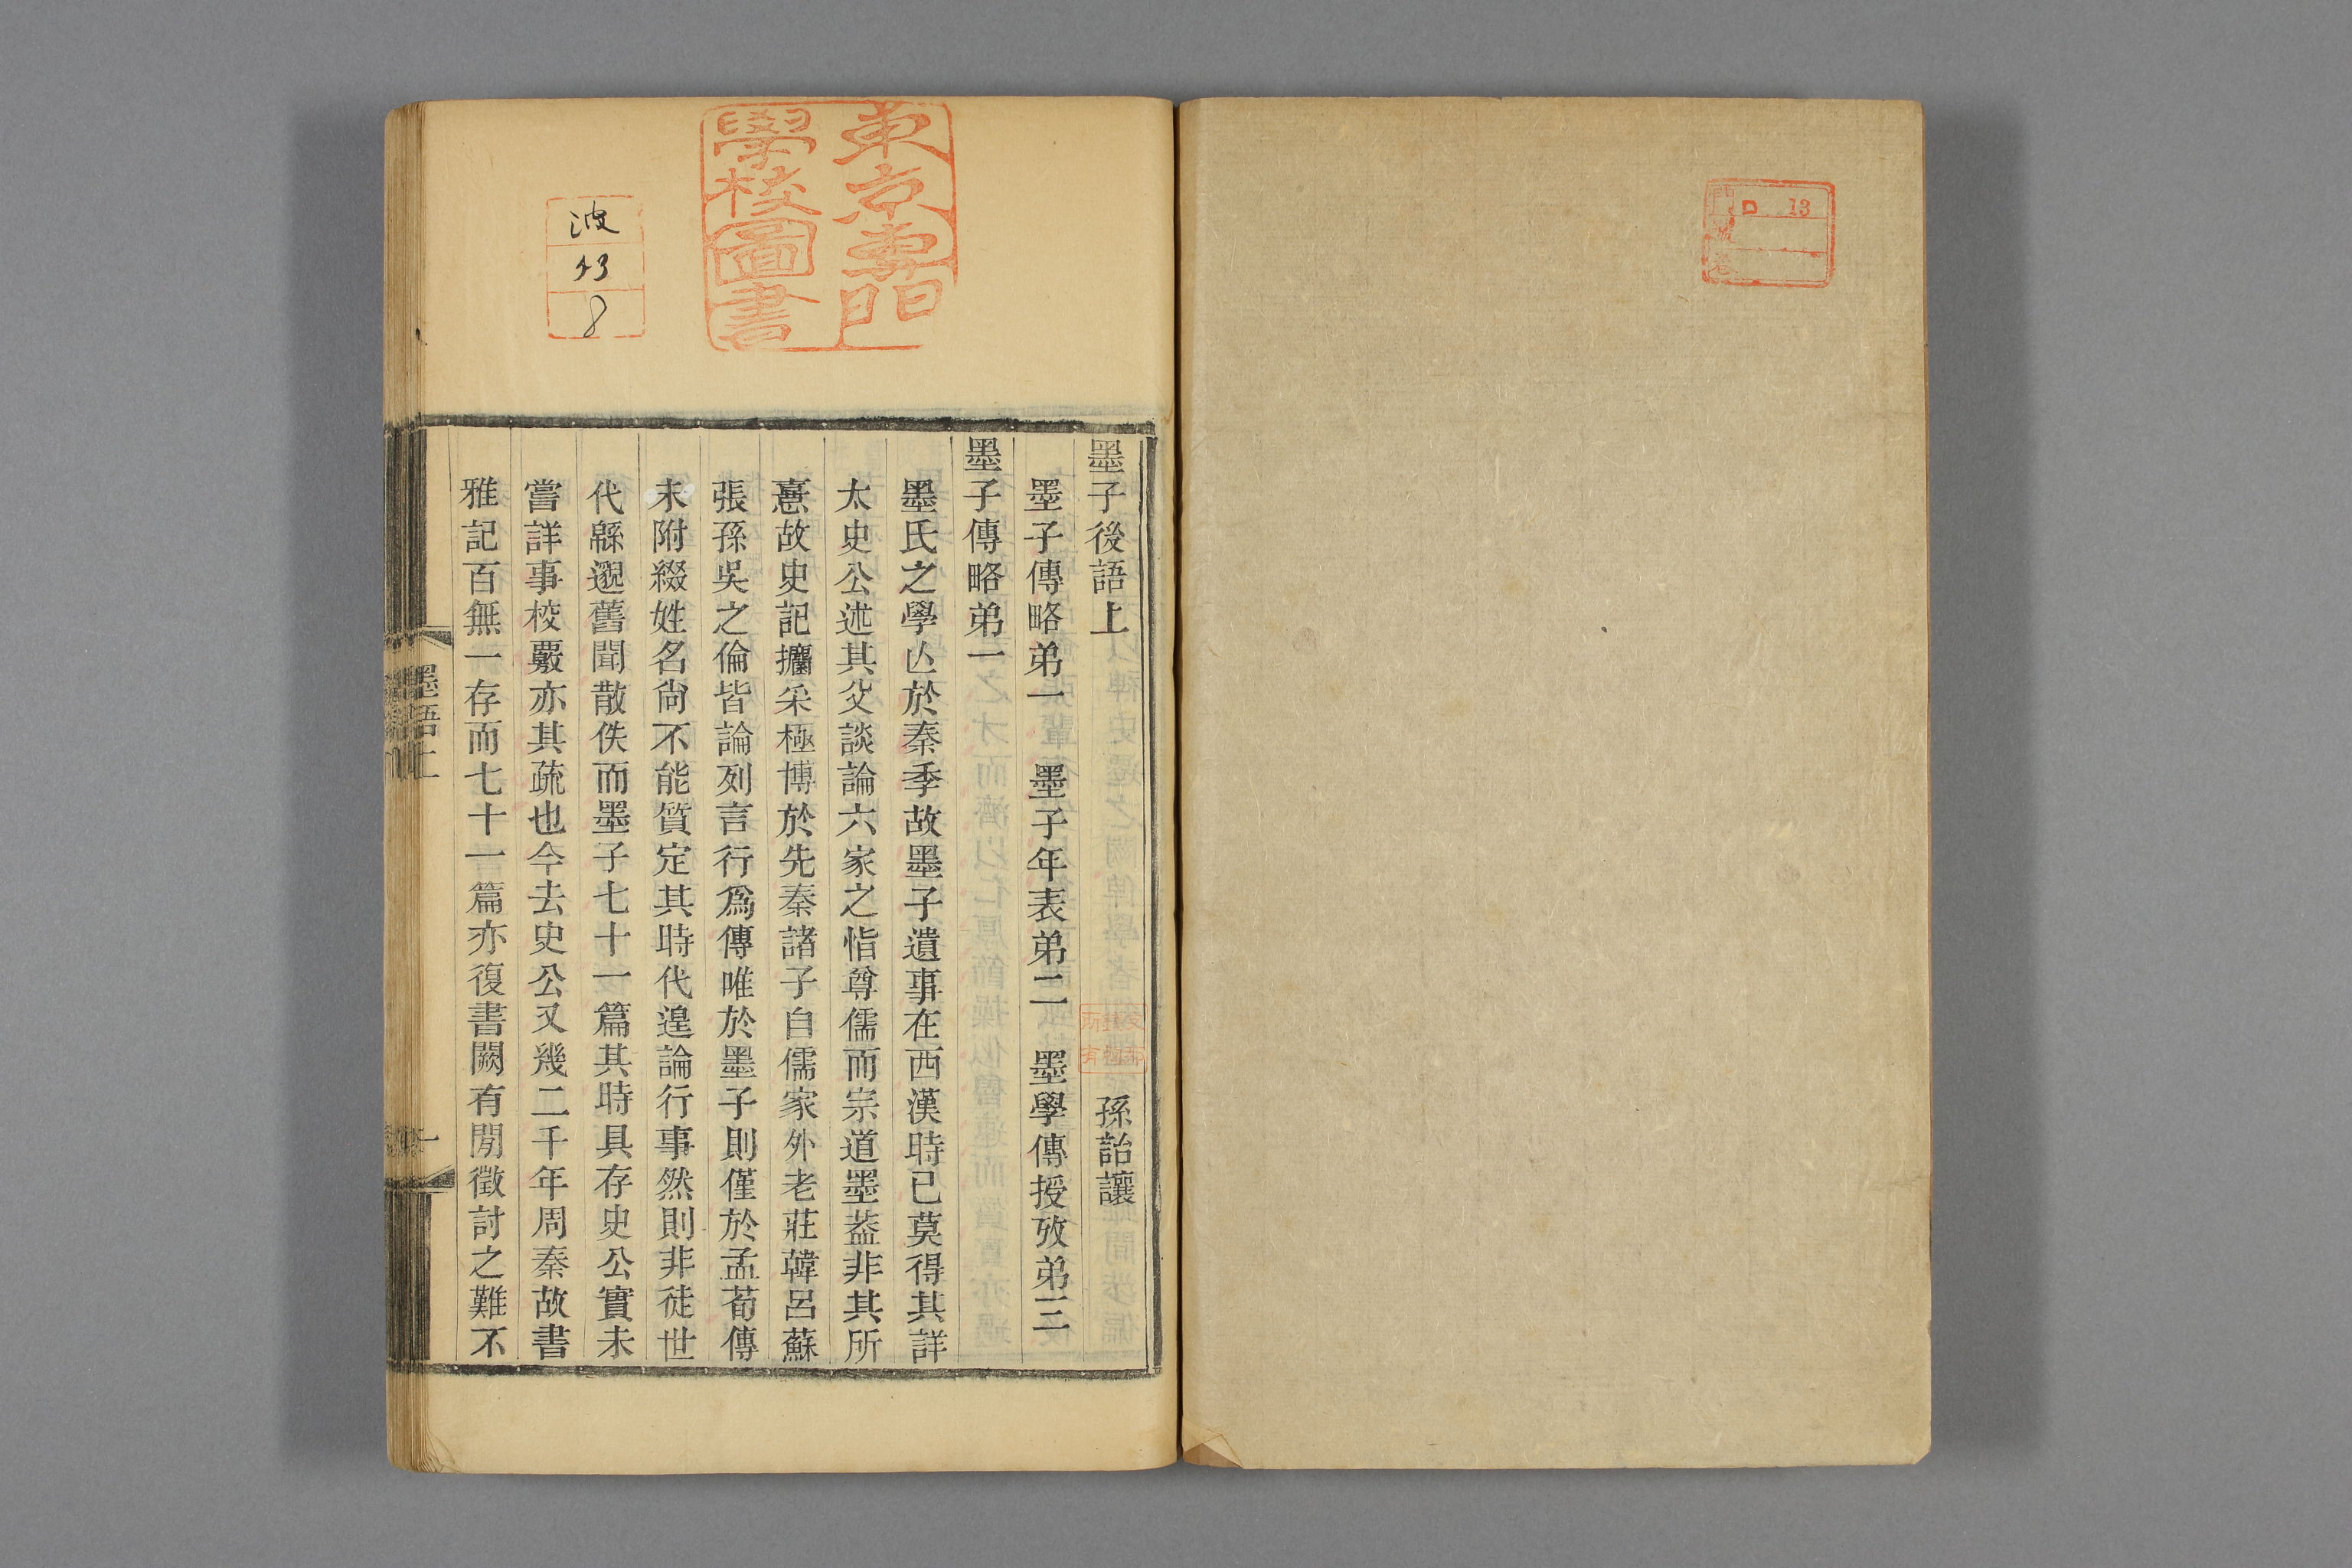 ロ 13
東京專門
學校圖書
波
43
8
墨子後語上 孫詒讓
墨子傳略弟一 墨子年表弟二 墨學傳授攷弟三
墨子傳略弟一
墨氏之學亾於秦季故墨子遺事在西漢時已莫得其詳
太史公述其父談論六家之恉尊儒而宗道墨葢非其所
憙故史記攟采極博於先秦諸子自儒家外老莊韓呂蘇
張孫吳之倫皆論列言行爲傳唯於墨子則僅於孟荀傳
末附綴姓名尙不能質定其時代遑論行事然則非徒世
代緜邈舊聞散佚而墨子七十一篇其時具存史公實未
嘗詳事校覈亦其疏也今去史公又幾二千年周秦故書
雅記百無一存而七十一篇亦復書闕有閒徵討之難不
墨語上
一